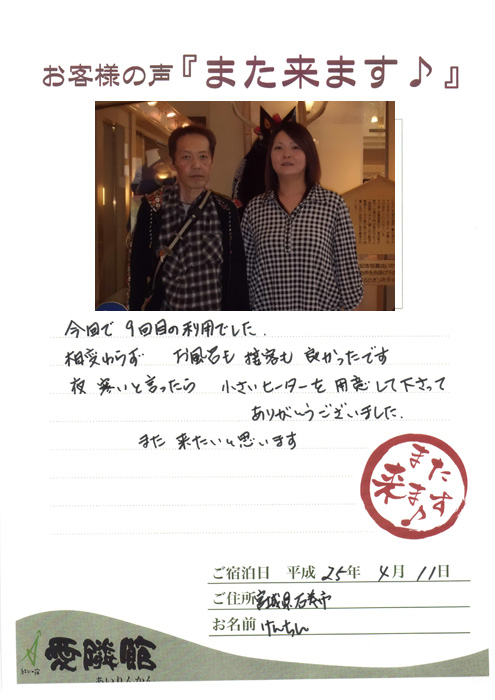 お客様の声『また来ます♪』
今回で 9回目の利用でした.
相変わらず お風呂も 接客も 良かったです
夜 寒いと言ったら 小さいヒーターを 用意して下さって
ありがとうございました.
また 来たいと思います
また
来ます♪
ご宿泊日 平成 25年 4月 11日
ご住所 宮城県石巻市
お名前 けんちん
愛隣館
あいりんかん